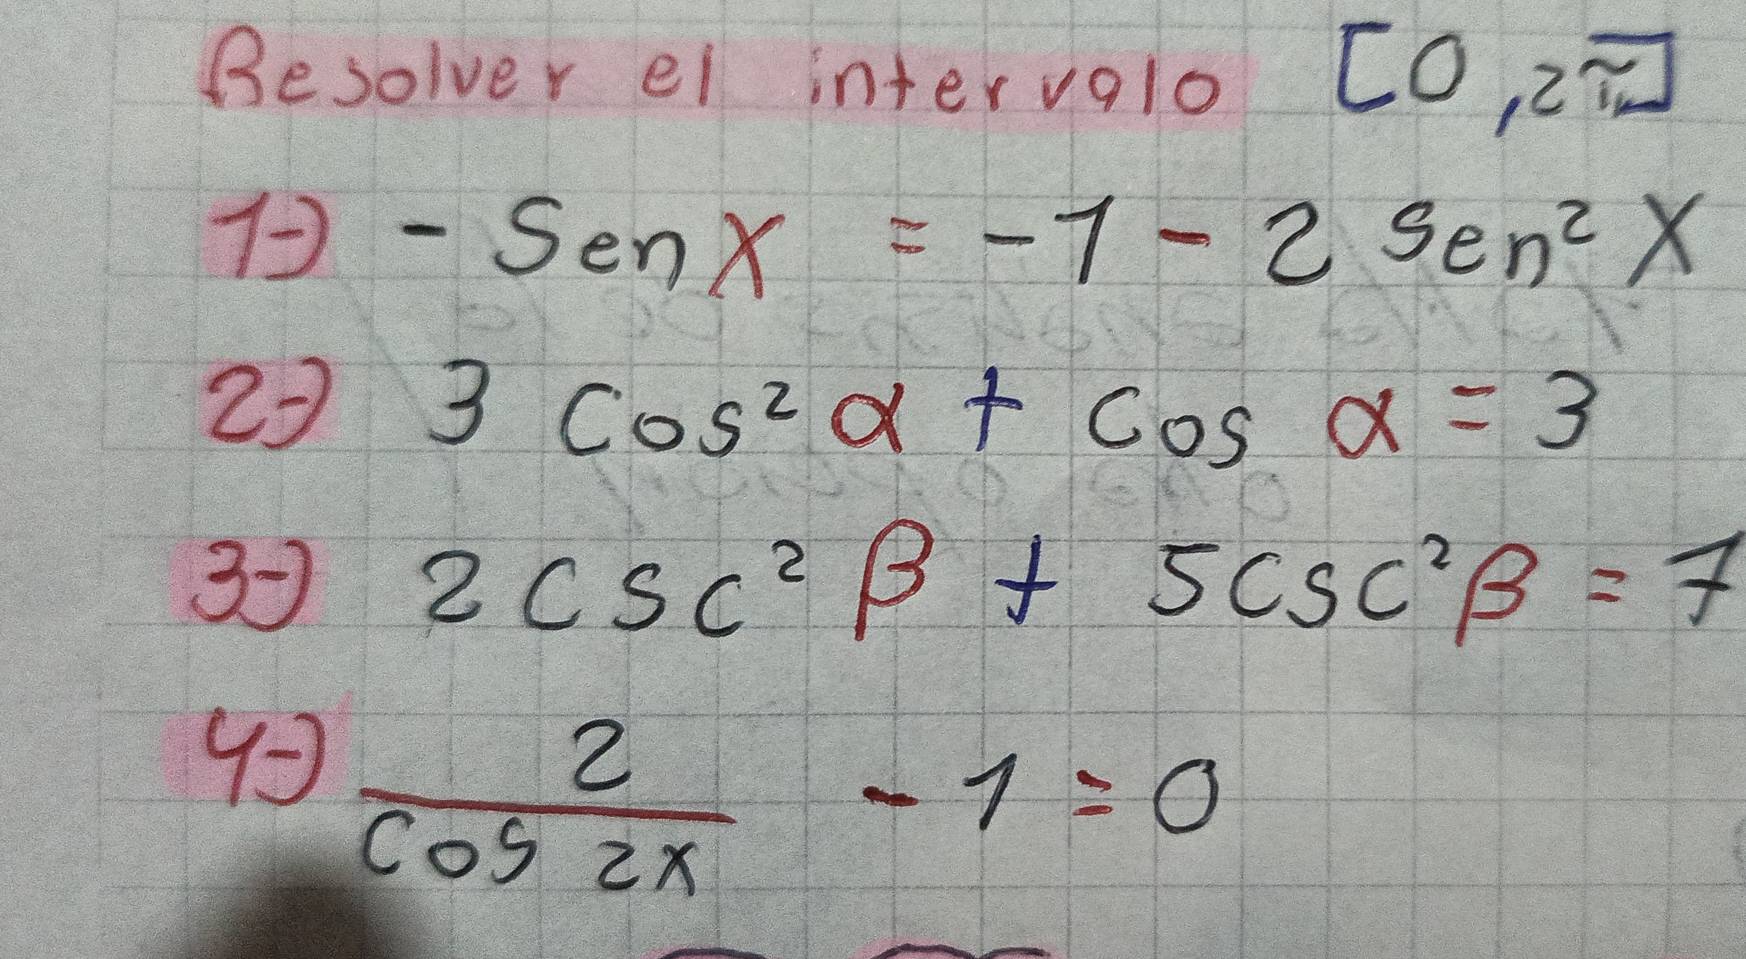 Resolver el intervalo [0, 2π]
1-) - Sen X = - 1 - 2 Sen² X
2-) 3 Cos² α + Cos α = 3
3-) 2 CSC² β + 5 CSC² β = 7
4-) 2/Cos 2x - 1 = 0